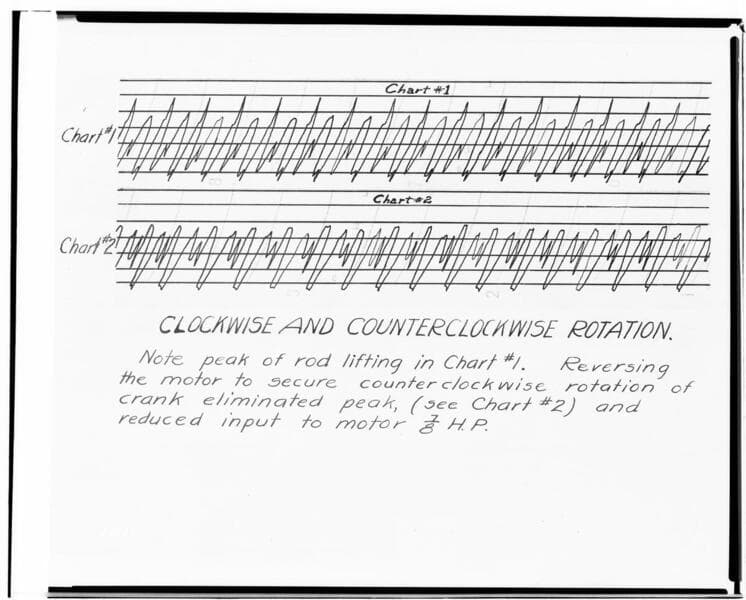 Chart #1
Chart #1
Chart #2
Chart #2
CLOCKWISE AND COUNTERCLOCKWISE ROTATION.
Note peak of rod lifting in Chart #1. Reversing
the motor to secure counterclockwise rotation of
crank eliminated peak, (see Chart #2) and
reduced input to motor 7/8 H.P.